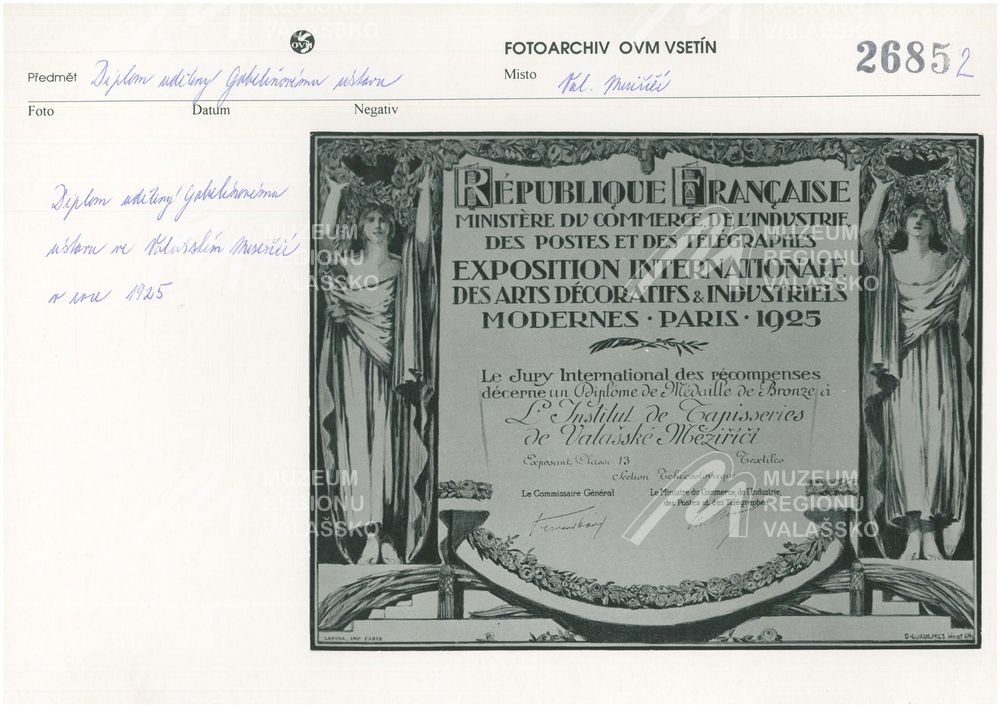 OVM
FOTOARCHIV OVM VSETÍN
26852
Předmět Diplom udělený Gobelínovému ústavu
Místo Val. Meziříčí
Foto Datum Negativ
Diplom udělený Gobelínovému
ústavu ve Valašském Meziříčí
v roce 1925
RÉPUBLIQUE FRANÇAISE
MINISTÈRE DU COMMERCE DE L'INDUSTRIE
DES POSTES ET DES TÉLÉGRAPHES
EXPOSITION INTERNATIONALE
DES ARTS DÉCORATIFS & INDUSTRIELS
MODERNES · PARIS · 1925
Le Jury International des récompenses
décerne un Diplôme de Médaille de Bronze à
L'Institut de Tapisseries
de Valašské Meziříčí
Exposant Classe 13 Textiles
Section Tchécoslovaquie
Le Commissaire Général
Le Ministre du Commerce, de l'Industrie,
des Postes et des Télégraphes
LAPINA, IMP. PARIS
G-L-JAULMES inv. et lith.
MUZEUM
REGIONU
VALAŠSKO
MUZEUM
REGIONU
VALAŠSKO
MUZEUM
REGIONU
VALAŠSKO
MUZEUM
REGIONU
VALAŠSKO
MUZEUM
REGIONU
VALAŠSKO
MUZEUM
REGIONU
VALAŠSKO